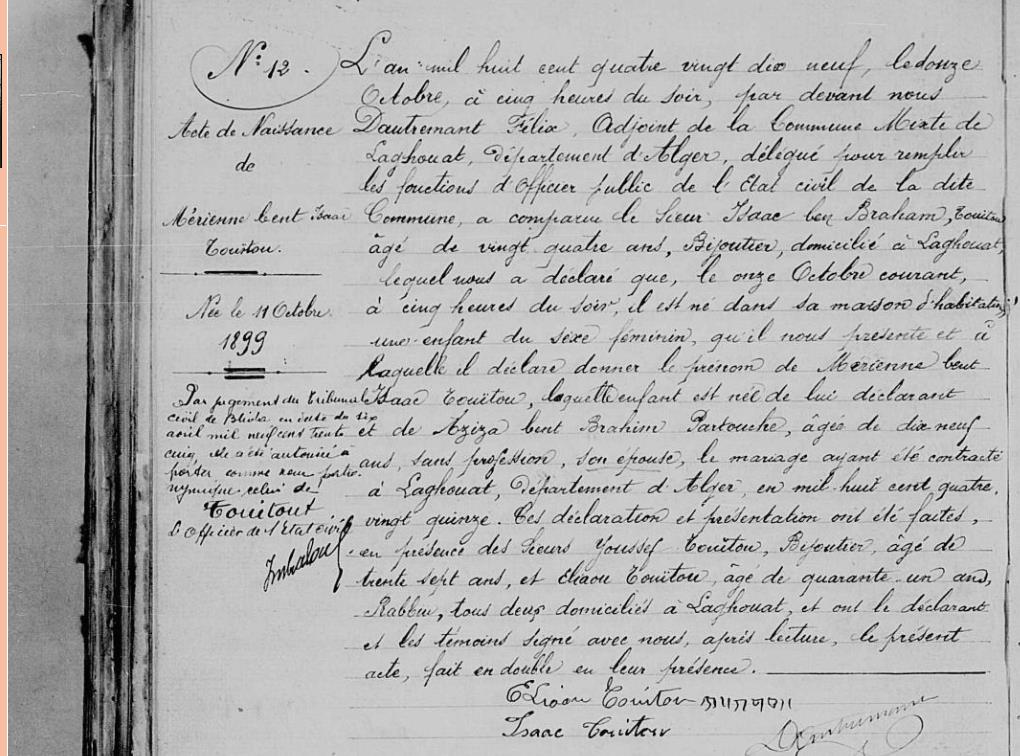 N° 12.
Acte de Naissance
de
Mérienne bent Isaac
Touitou.
Née le 11 Octobre
1899
Par jugement du Tribunal
civil de Blida en date du six
avril mil neuf cent trente
cinq, elle a été autorisée à
porter comme nom patro-
nymique celui de
Touitout
L'Officier de l'Etat civil
L'an mil huit cent quatre vingt dix neuf, le douze
Octobre, à cinq heures du soir, par devant nous
Dautremant Félix, Adjoint de la Commune Mixte de
Laghouat, Département d'Alger, délégué pour remplir
les fonctions d'Officier public de l'Etat civil de la dite
Commune, a comparu le Sieur Isaac ben Braham, Touitou
âgé de vingt quatre ans, Bijoutier, domicilié à Laghouat,
lequel nous a déclaré que, le onze Octobre courant,
à cinq heures du soir, il est né dans sa maison d'habitation
une enfant du sexe féminin, qu'il nous présente et à
laquelle il déclare donner le prénom de Mérienne bent
Isaac Touïtou, laquelle enfant est née de lui déclarant
et de Aziza bent Brahim Partouche, âgée de dix neuf
ans, sans profession, son épouse, le mariage ayant été contracté
à Laghouat, Département d'Alger, en mil huit cent quatre
vingt quinze. Ces déclaration et présentation ont été faites,
en présence des Sieurs Youssef Touïtou, Bijoutier, âgé de
trente sept ans, et Eliaou Touïtou, âgé de quarante un ans,
Rabbin, tous deux domiciliés à Laghouat, et ont le déclarant
et les témoins signé avec nous, après lecture, le présent
acte, fait en double en leur présence.
Eliaou Touitou
Isaac Touitou